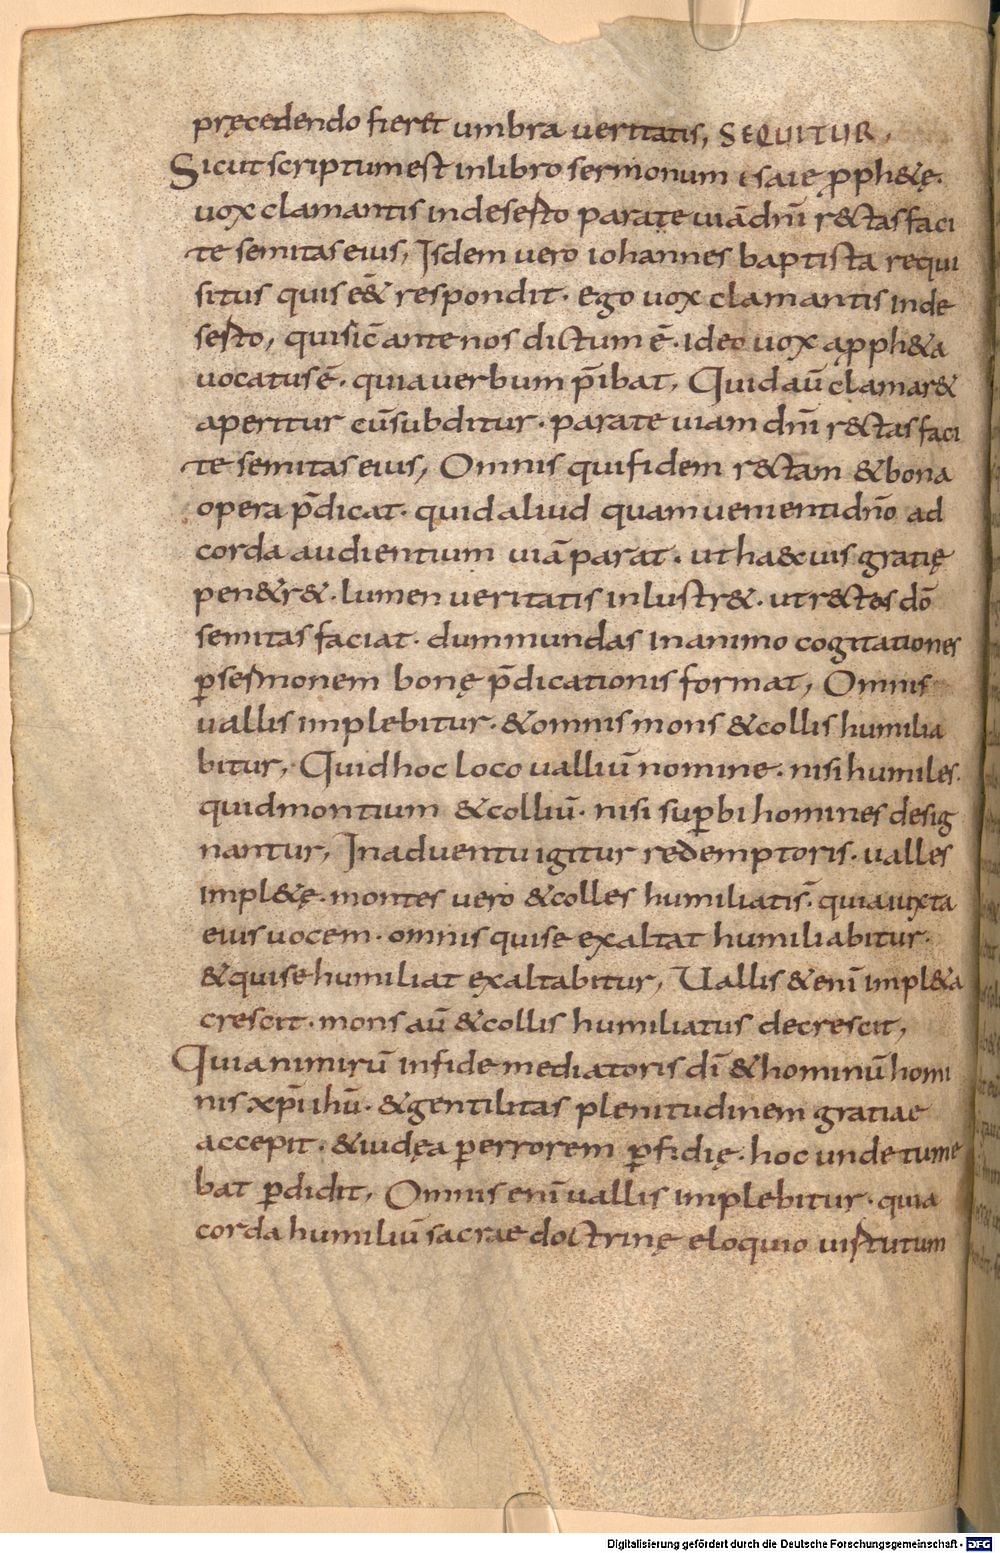 pręcedendo fieret umbra ueritatis, SEQUITUR,
Sicut scriptum est in libro sermonum isaie ꝓph&ę.
uox clamantis in deserto parate uiā dn̄i r&tas faci
te semitas eius, Isdem uero iohannes baptista requi
situs quis eē& respondit. ego uox clamantis in de
serto, qui sic̄ ante nos dictum ē. ideo uox a ꝓph&a
uocatus ē. quia uerbum p̄ibat, Quid aū clamar&
aperitur cū subditur. parate uiam dn̄i r&tas faci
te semitas eius, Omnis qui fidem r&tam & bona
opera p̄dicat. quid aliud quam uenienti dn̄o ad
corda audientium uiā parat. ut haec uis gratię
pen&r&. lumen ueritatis inlustr&. ut r&tas dō
semitas faciat. dum mundas in animo cogitationes
ꝑ sermonem bonę p̄dicationis format, Omnis
uallis implebitur. & omnis mons & collis humilia
bitur, Quid hoc loco ualliū nomine. nisi humiles.
quid montium & colliū. nisi suꝑbi homines desig
nantur, In aduentu igitur redemptoris. ualles
impl&ę. montes uero & colles humiliatis̄. quia iuxta
eius uocem. omnis qui se exaltat humiliabitur.
& qui se humiliat exaltabitur, Uallis &enī impl&a
crescit. mons aū & collis humiliatus decrescit,
Quia nimirū in fide mediatoris dī & hominū homi
nis xp̄i ihū. & gentilitas plenitudinem gratiae
accepit. & iudęa per errorem ꝑfidię. hoc unde tume
bat ꝑdidit, Omnis enī uallis implebitur. quia
corda humiliū sacrae doctrinę eloquio uirtutum
Digitalisierung gefördert durch die Deutsche Forschungsgemeinschaft - DFG